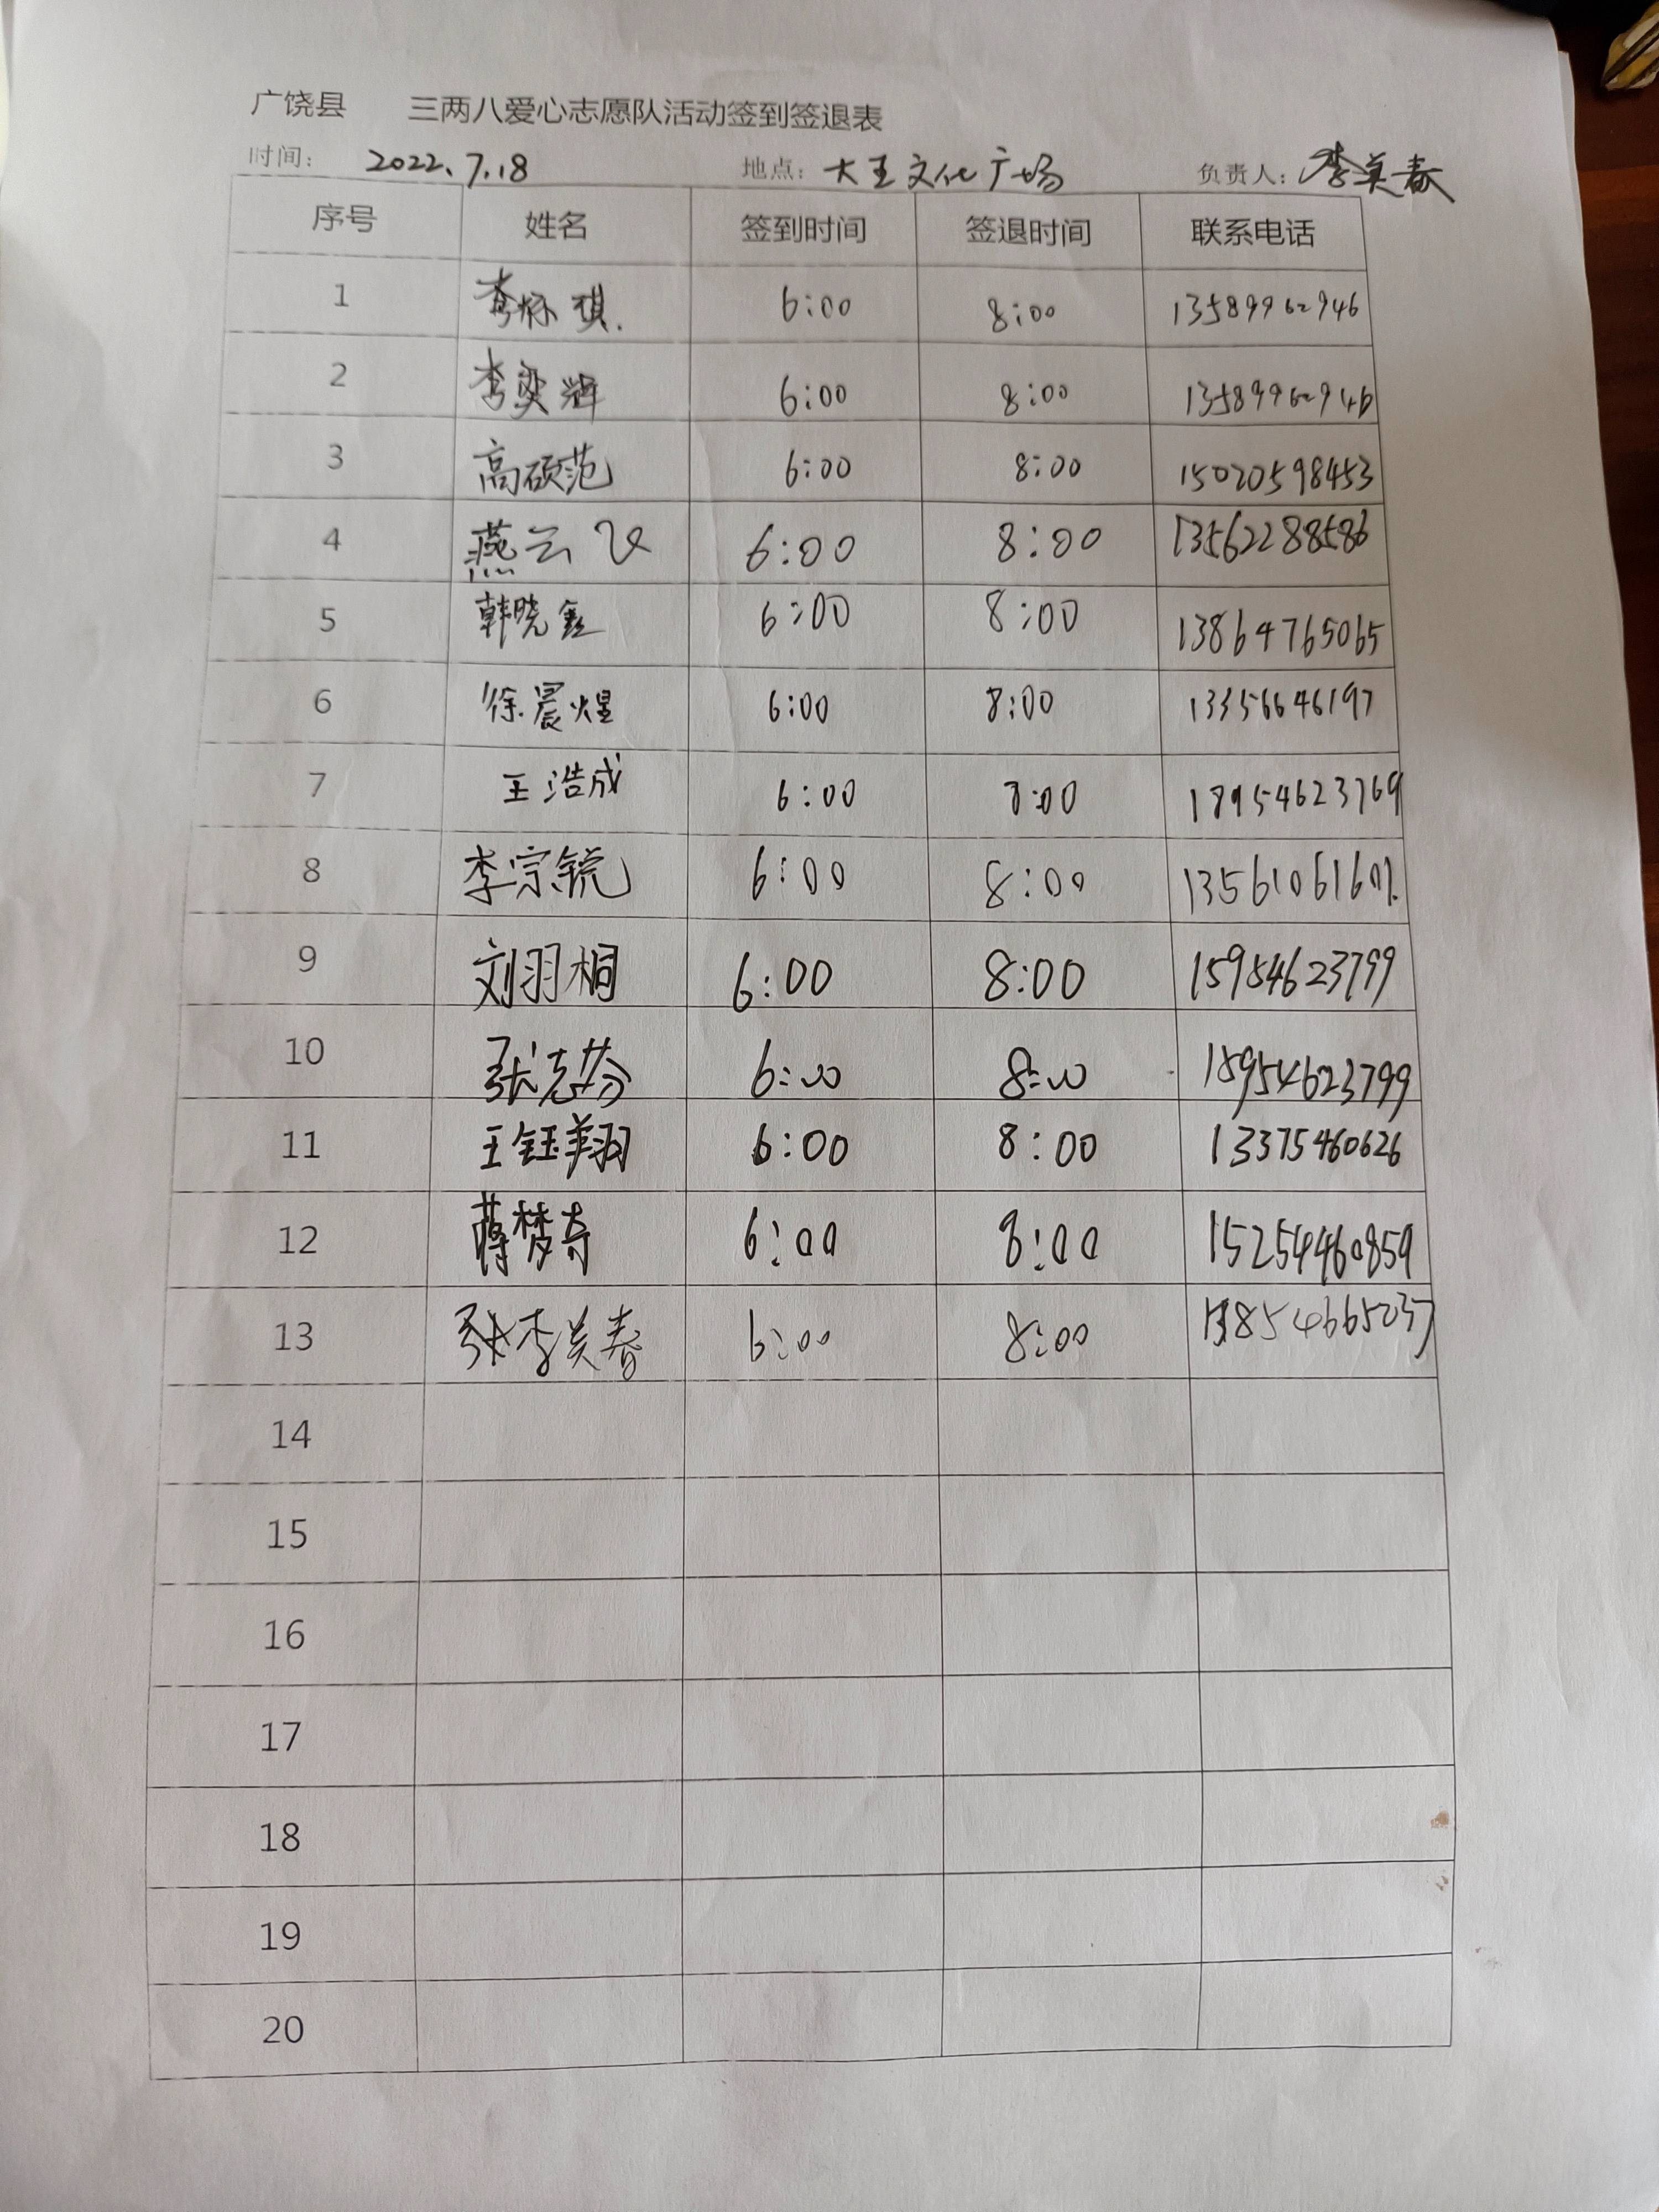 广饶县 三两八爱心志愿队活动签到签退表
时间: 2022.7.18 地点: 大王文化广场 负责人: 李美春
序号 姓名 签到时间 签退时间 联系电话
1 李 琪 6:00 8:00 13589962946
2 李奕辉 6:00 8:00 13589962946
3 高硕范 6:00 8:00 15020598453
4 燕云飞 6:00 8:00 13562288586
5 韩晓鑫 6:00 8:00 13864765065
6 徐晨煌 6:00 8:00 13356646197
7 王浩成 6:00 8:00 18954623769
8 李宗锐 6:00 8:00
9 刘羽桐 6:00 8:00 15954623799
10 张志芬 6:00 8:00 15954623799
11 王钰翔 6:00 8:00 13375460626
12 蒋梦奇 6:00 8:00 15254460859
13 李美春 6:00 8:00 13854665037
14
15
16
17
18
19
20